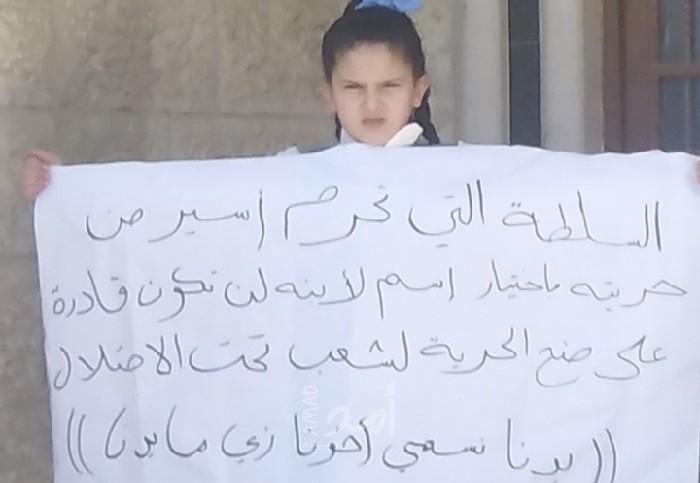 السلطة التي تحرم اسير من
حريته باختيار اسم لأبنه لن تكون قادرة
على منح الحرية لشعب تحت الاحتلال
((بدنا نسمي أخونا زي ما بدنا))
أمد
AMAD